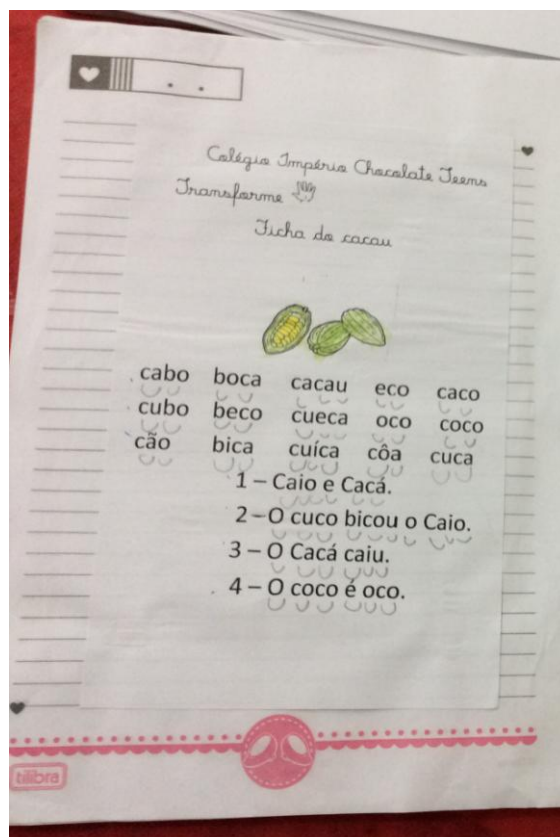 Colégio Império Chocolate Teens
Transforme
Ficha do cacau
cabo boca cacau eco caco
cubo beco cueca oco coco
cão bica cuíca côa cuca
1 – Caio e Cacá.
2 – O cuco bicou o Caio.
3 – O Cacá caiu.
4 – O coco é oco.
tilibra